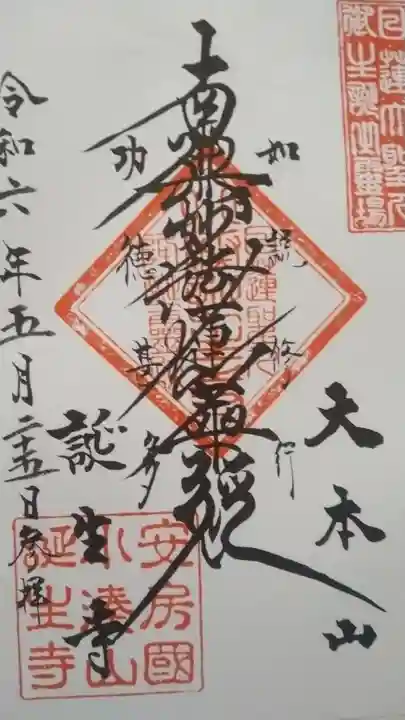 日蓮大聖人
御生誕之靈場
大本山
如説修行
南無妙法蓮華経
功徳甚多
誕生寺
令和六年五月二十五日参拝
安房國
小湊山
誕生寺